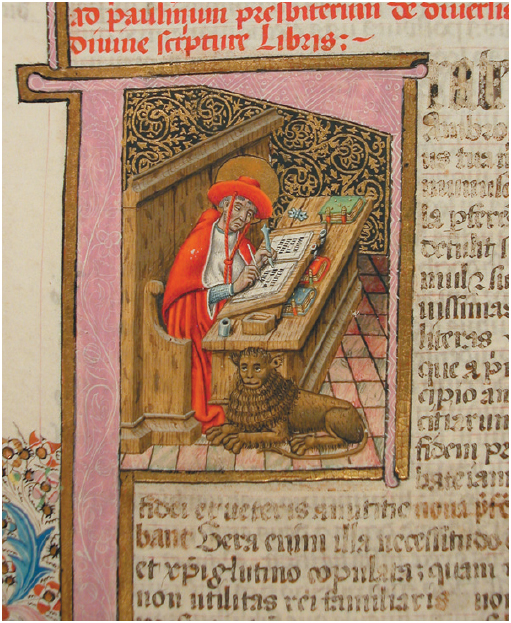 ad paulinum presbiterum de diversis
divine scripture Libris:~
Ambro
us tua
la pfere
detulit s
mul z sua
uissimas
literas
que a pri
cipio ami
citiarum
fidem pr
bate iam
fidei et veteris amicitie noua pfe
bant Vera enim illa necessitudo
et xpi glutino copulata; quam
non utilitas rei familiaris non